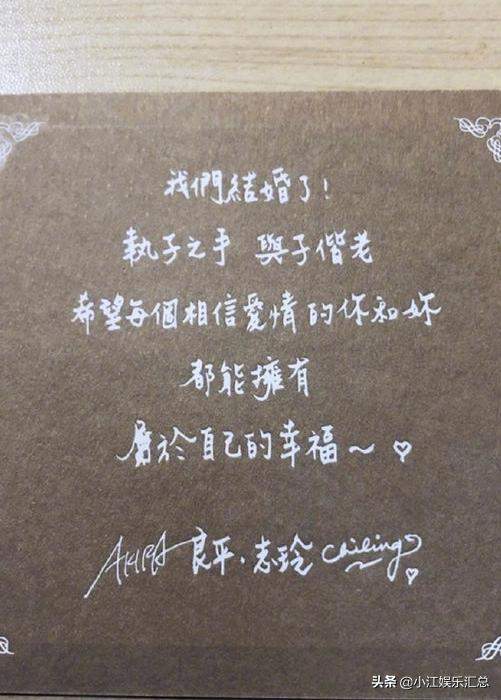 我們結婚了!
執子之手 與子偕老
希望每個相信愛情的你和妳
都能擁有
屬於自己的幸福~ ♡
AKIRA 良平、志玲 Chiling ♡
头条 @小江娱乐汇总